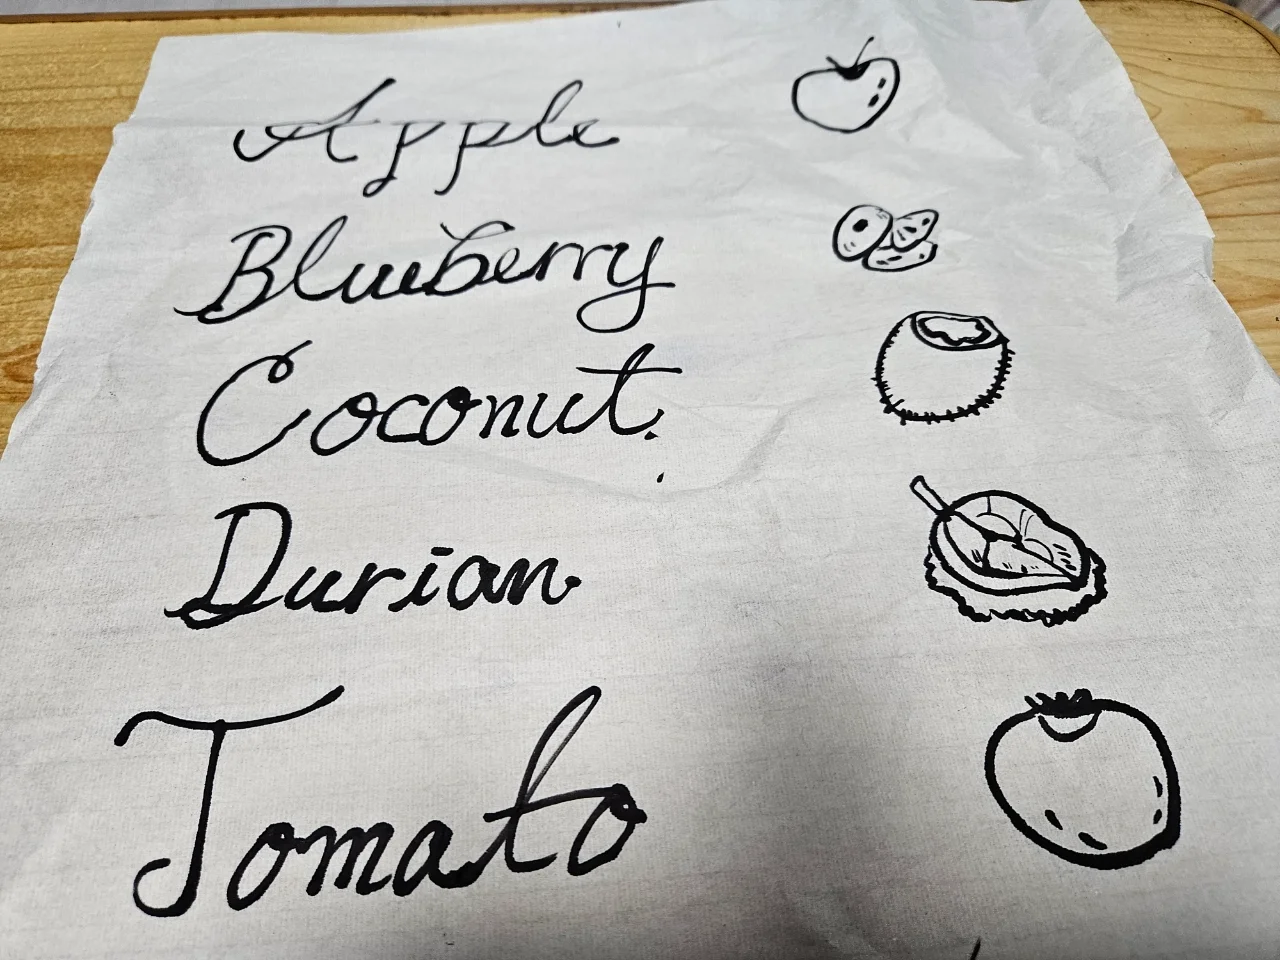 Apple
Blueberry
Coconut.
Durian
Tomato